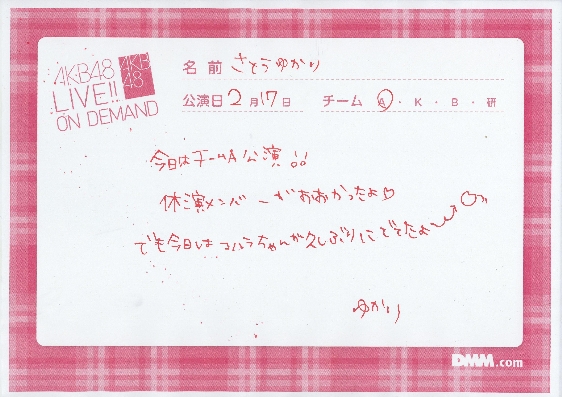 AKB48
LIVE!!
ON DEMAND
AKB
48
名前 さとうゆかり
公演日 2月17日 チーム A・K・B・研
今日はチームA公演!!
休演メンバーがおおかったよ♡
でも今日は ちゃんが久しぶりにでてたよ〜
ゆかり
DMM.com